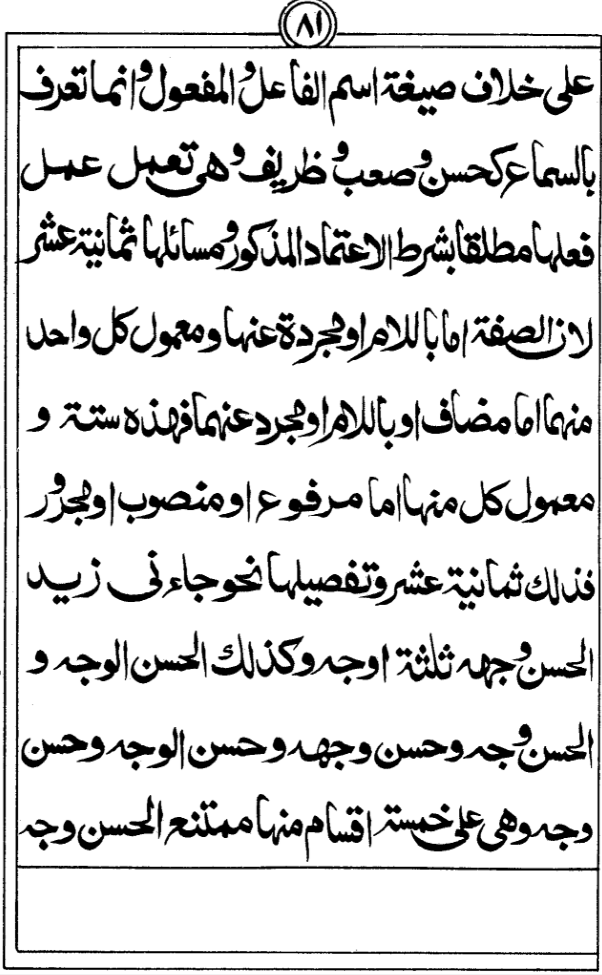 ٨١
على خلاف صيغة اسم الفاعل والمفعول وانما تعرف
بالسماع كحسن وصعب وظريف وهى تعمل عمل
فعلها مطلقا بشرط الاعتماد المذكور ومسائلها ثمانية عشر
لان الصفة اما باللام او مجردة عنها ومعمول كل واحد
منهما اما مضاف او باللام او مجرد عنهما فهذه ستة و
معمول كل منها اما مرفوع او منصوب او مجرور
فذلك ثمانية عشر وتفصيلها نحو جاءنى زيد
الحسن وجهه ثلثة اوجه وكذلك الحسن الوجه و
الحسن وجه وحسن وجهه وحسن الوجه وحسن
وجه وهى على خمسة اقسام منها ممتنع الحسن وجه